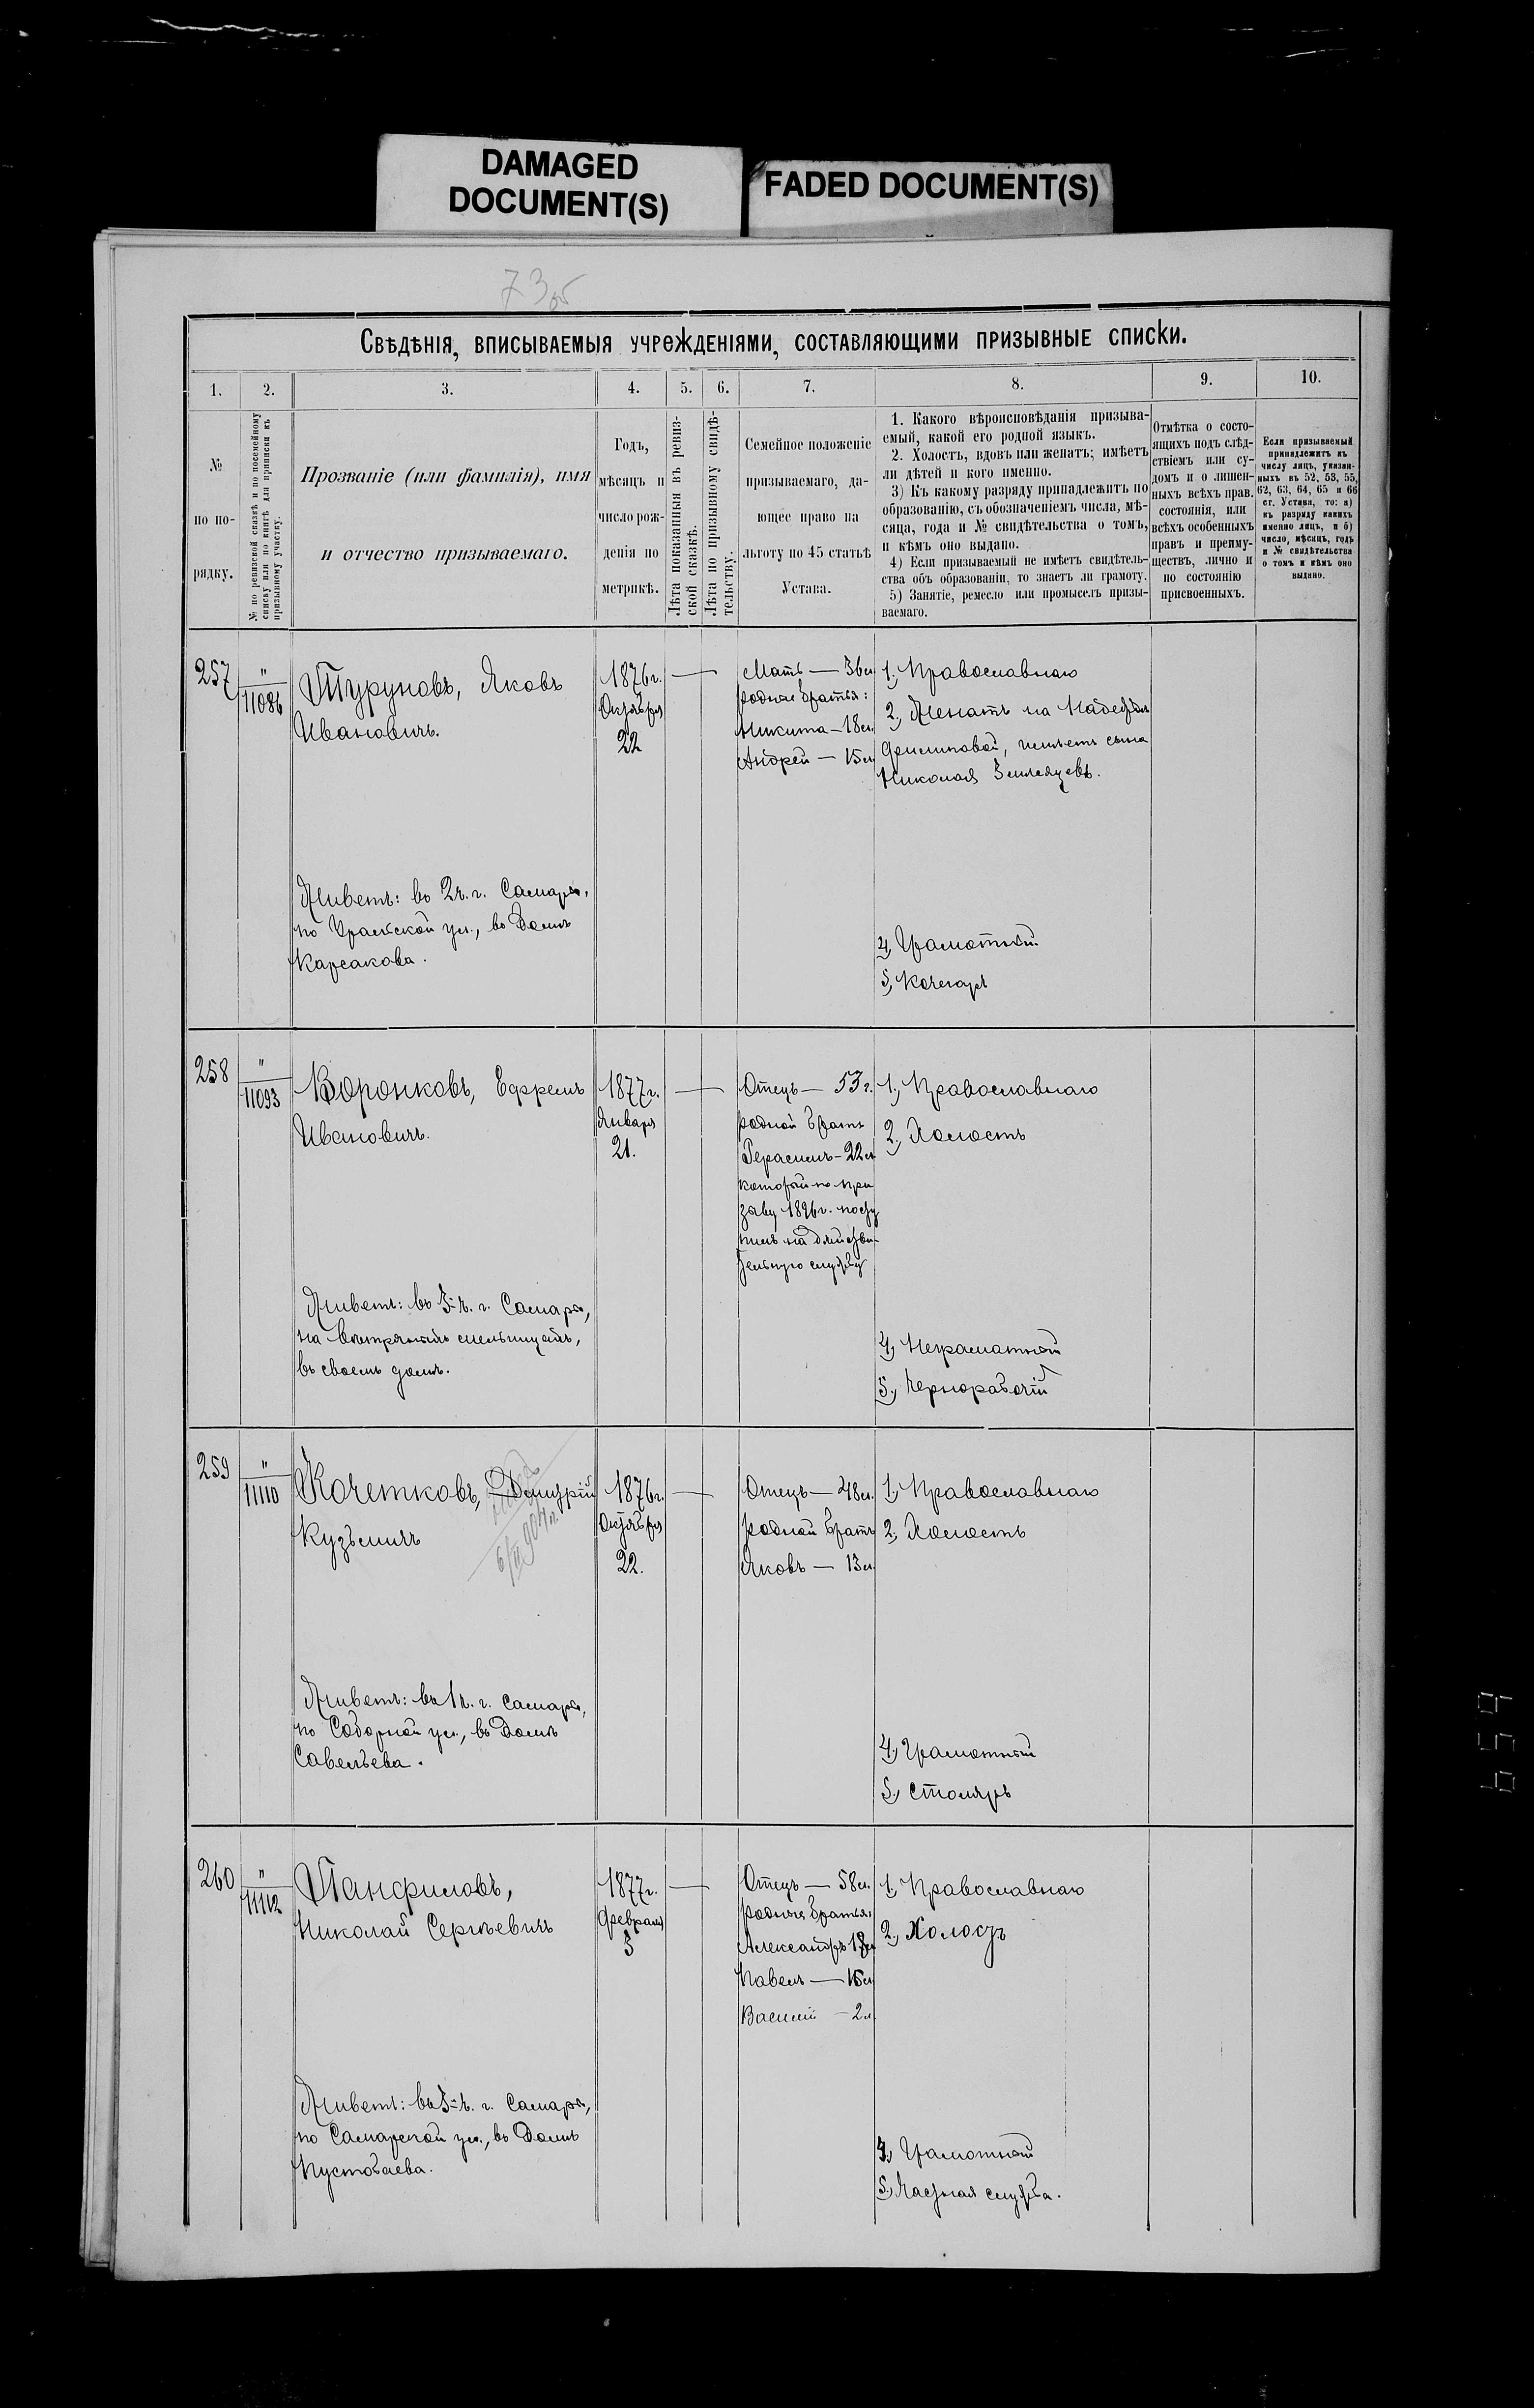 DAMAGED
DOCUMENT(S)
FADED DOCUMENT(S)
73 об
Свѣдѣнія, вписываемыя учрежденіями, составляющими призывные списки.
1. 2. 3. 4. 5. 6. 7. 8. 9. 10.
№
по по-
рядку.
№ по ревизской сказкѣ и по посемейному
списку или по книгѣ для приписки къ
призывному участку.
Прозваніе (или фамилія), имя
и отчество призываемаго.
Годъ,
мѣсяцъ и
число рож-
денія по
метрикѣ.
Лѣта показанныя въ ревиз-
ской сказкѣ.
Лѣта по призывному свидѣ-
тельству.
Семейное положеніе
призываемаго, да-
ющее право на
льготу по 45 статьѣ
Устава.
1. Какого вѣроисповѣданія призыва-
емый, какой его родной языкъ.
2. Холостъ, вдовъ или женатъ; имѣетъ
ли дѣтей и кого именно.
3) Къ какому разряду принадлежитъ по
образованію, съ обозначеніемъ числа, мѣ-
сяца, года и № свидѣтельства о томъ,
и кѣмъ оно выдано.
4) Если призываемый не имѣетъ свидѣтель-
ства объ образованіи, то знаетъ ли грамоту.
5) Занятіе, ремесло или промыселъ призы-
ваемаго.
Отмѣтка о состо-
ящихъ подъ слѣд-
ствіемъ или су-
домъ и о лишен-
ныхъ всѣхъ прав.
состоянія, или
всѣхъ особенныхъ
правъ и преиму-
ществъ, лично и
по состоянію
присвоенныхъ.
Если призываемый
принадлежитъ къ
числу лицъ, указан-
ныхъ въ 52, 53, 55,
62, 63, 64, 65 и 66
ст. Устава, то: а)
къ разряду какихъ
именно лицъ, и б)
число, мѣсяцъ, годъ
и № свидѣтельства
о томъ и кѣмъ оно
выдано.
257
"
11086
Туруновъ, Яковъ
Ивановичъ.
Живетъ: во 2 ч. г. Самары,
по Уральской ул., въ домѣ
Карсакова.
1876 г.
Октября
22
—
Мать — 36 л.
родные братья:
Никита — 18 л.
Андрей — 15 л.
1., Православнаго
2., Женатъ на Надеждѣ
имѣетъ сына
Николая
4, Грамотный
5, Кочегаръ
258
"
11093
Воронковъ, Ефремъ
Ивановичъ.
Живетъ: въ 3-ч. г. Самары,
на вѣтряныхъ мельницахъ,
въ своемъ домѣ.
1877 г.
Января
21.
—
Отецъ — 53 г.
родной братъ
Герасимъ — 22 л.
который по при
зыву 1896 г. посту
пилъ на дѣйстви-
тельную службу
1., Православнаго
2., Холостъ
4, Неграмотный
5., Чернорабочій
259
"
11110
Кочетковъ, Дмитрій
Кузьмичъ
Живетъ: въ 1 ч. г. Самары,
по Соборной ул., въ домѣ
Савельева.
1876 г.
Октября
22.
—
Отецъ — 48 л.
родной братъ
Яковъ — 13 л.
1., Православнаго
2, Холостъ
4., Грамотный
5., Столяръ
260
"
11112
Панфиловъ,
Николай Сергѣевичъ
Живетъ: въ 3-ч. г. Самары,
по Самарской ул., въ домѣ
Кустобаева.
1877 г.
Февраля
3
—
Отецъ — 58 л.
родные братья:
Александръ 18 л
Павелъ — 15 л
Василій — 2 л.
1, Православнаго
2., Холостъ
4., Грамотный
5., Частная служба.
659